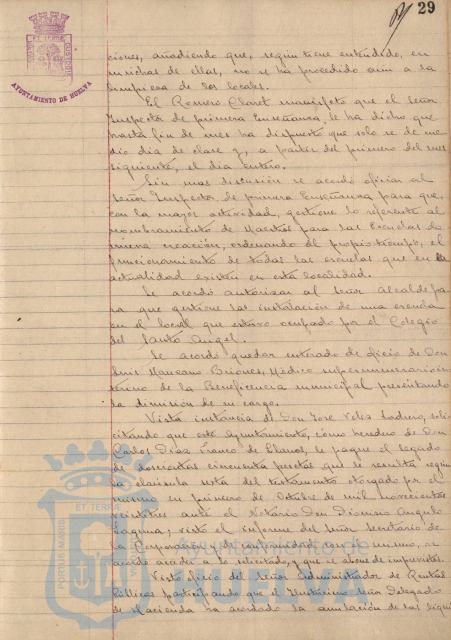 29
AYUNTAMIENTO DE HUELVA
ciones, añadiendo que, según tiene entendido, en
muchas de ellas, no se ha procedido aun a la
limpieza de los locales.
El Romero Claret manifesto que el señor
Inspector de primera Enseñanza, le ha dicho que
hasta fin de mes ha dispuesto que solo se de me
dio dia de clase y, a partir del primero del mes
siguiente, el dia entero.
Sin mas discusión se acordó oficiar al
señor Inspector de primera Enseñanza para que,
con la mayor actividad, gestione lo referente al
nombramiento de Maestros para las Escuelas de
nueva creación, ordenando al propio tiempo, el
funcionamiento de todas las escuelas que en la
actualidad existen en esta localidad.
Se acordó autorizar al señor Alcalde pa
ra que gestione la instalación de una escuela
en el local que estuvo ocupado por el Colegio
del Santo Angel.
Se acordó quedar enterado de oficio de Don
Luis Manzano Briones, Médico supernumerario in
terino de la Beneficencia municipal presentando
la dimisión de su cargo.
Vista instancia de Don José Velez soli
citando que este Ayuntamiento, como heredero de Don
Carlos Diaz Franco de Llanos, le pague el legado
de doscientas cincuenta pesetas que le resulta según
la clausula sexta del testamento otorgado por el
mismo en primero de Octubre de mil novecientos
veintitres ante el Notario Don Dionisio Angulo
Laguna; visto el informe del señor Secretario de
la Corporación y de conformidad con el mismo, se
acordó acceder a lo solicitado, y que se abone de imprevistos.
Visto oficio del Señor Administrador de Rentas
Públicas participando que el Ilustrisimo Señor Delegado
de Hacienda ha acordado la anulación de las liqui